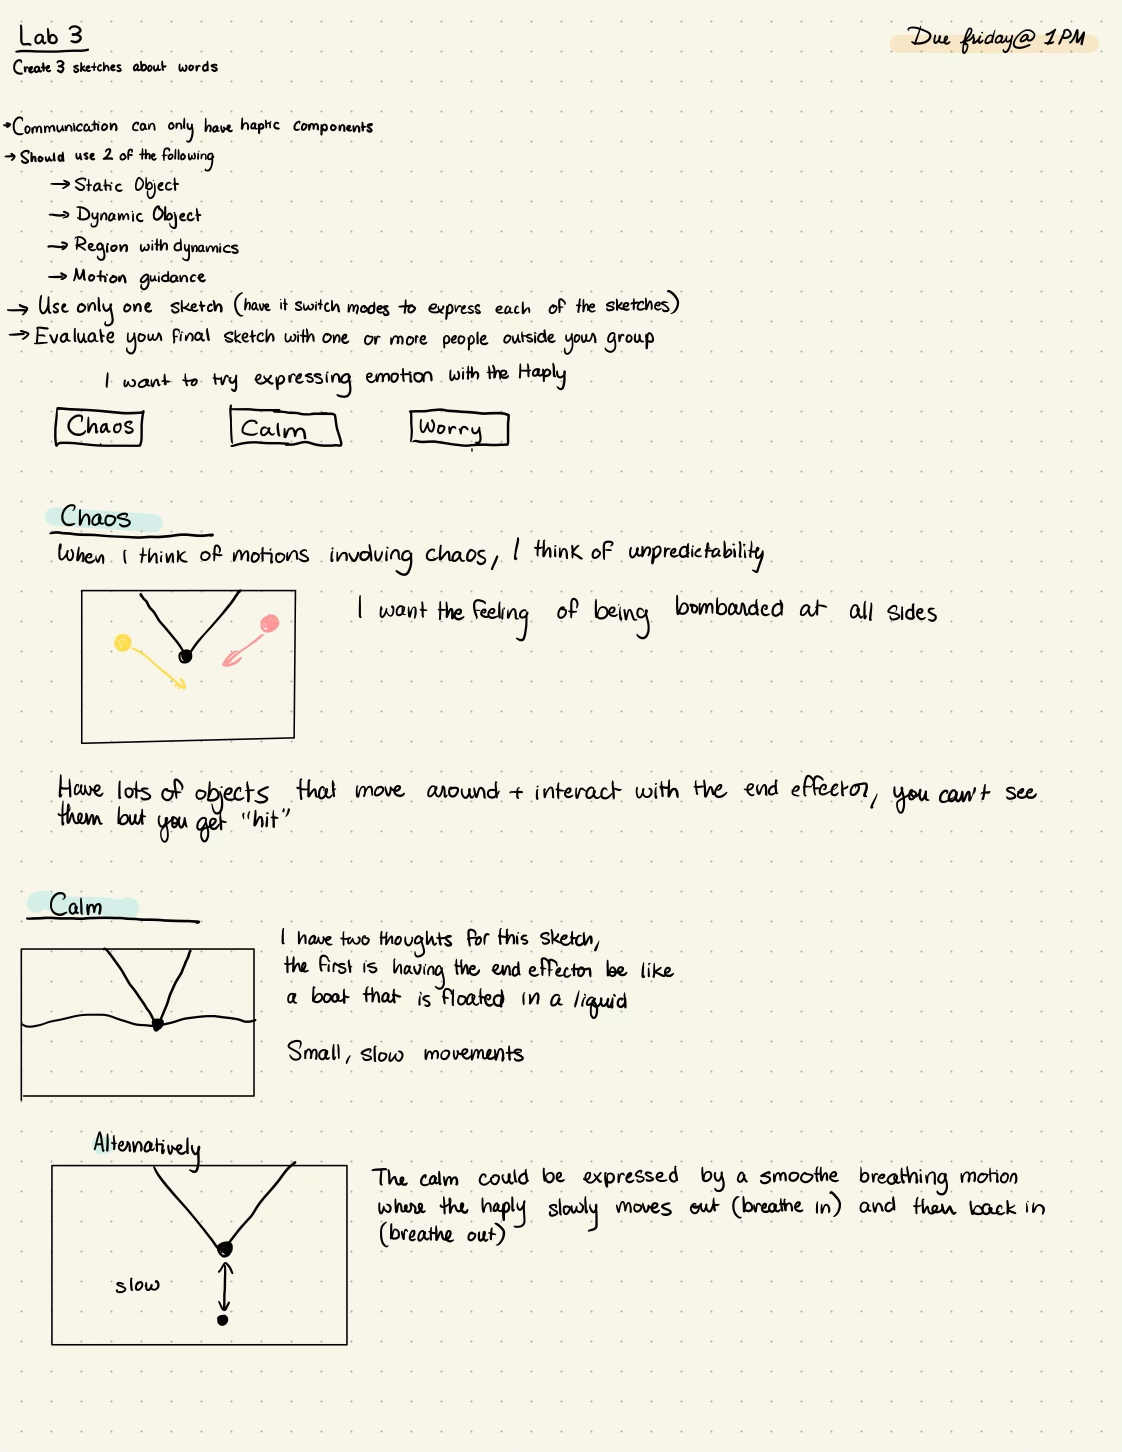 Lab 3
Due friday@ 1PM
Create 3 sketches about words
→Communication can only have haptic components
→ Should use 2 of the following
→ Static Object
→ Dynamic Object
→ Region with dynamics
→ Motion guidance
→ Use only one sketch (have it switch modes to express each of the sketches)
→ Evaluate your final sketch with one or more people outside your group
I want to try expressing emotion with the Haply
Chaos
Calm
Worry
Chaos
When I think of motions involving chaos, I think of unpredictability
I want the feeling of being bombarded at all sides
Have lots of objects that move around + interact with the end effector, you can't see
them but you get "hit"
Calm
I have two thoughts for this sketch,
the first is having the end effector be like
a boat that is floated in a liquid
Small, slow movements
Alternatively
The calm could be expressed by a smoothe breathing motion
where the haply slowly moves out (breathe in) and then back in
(breathe out)
slow